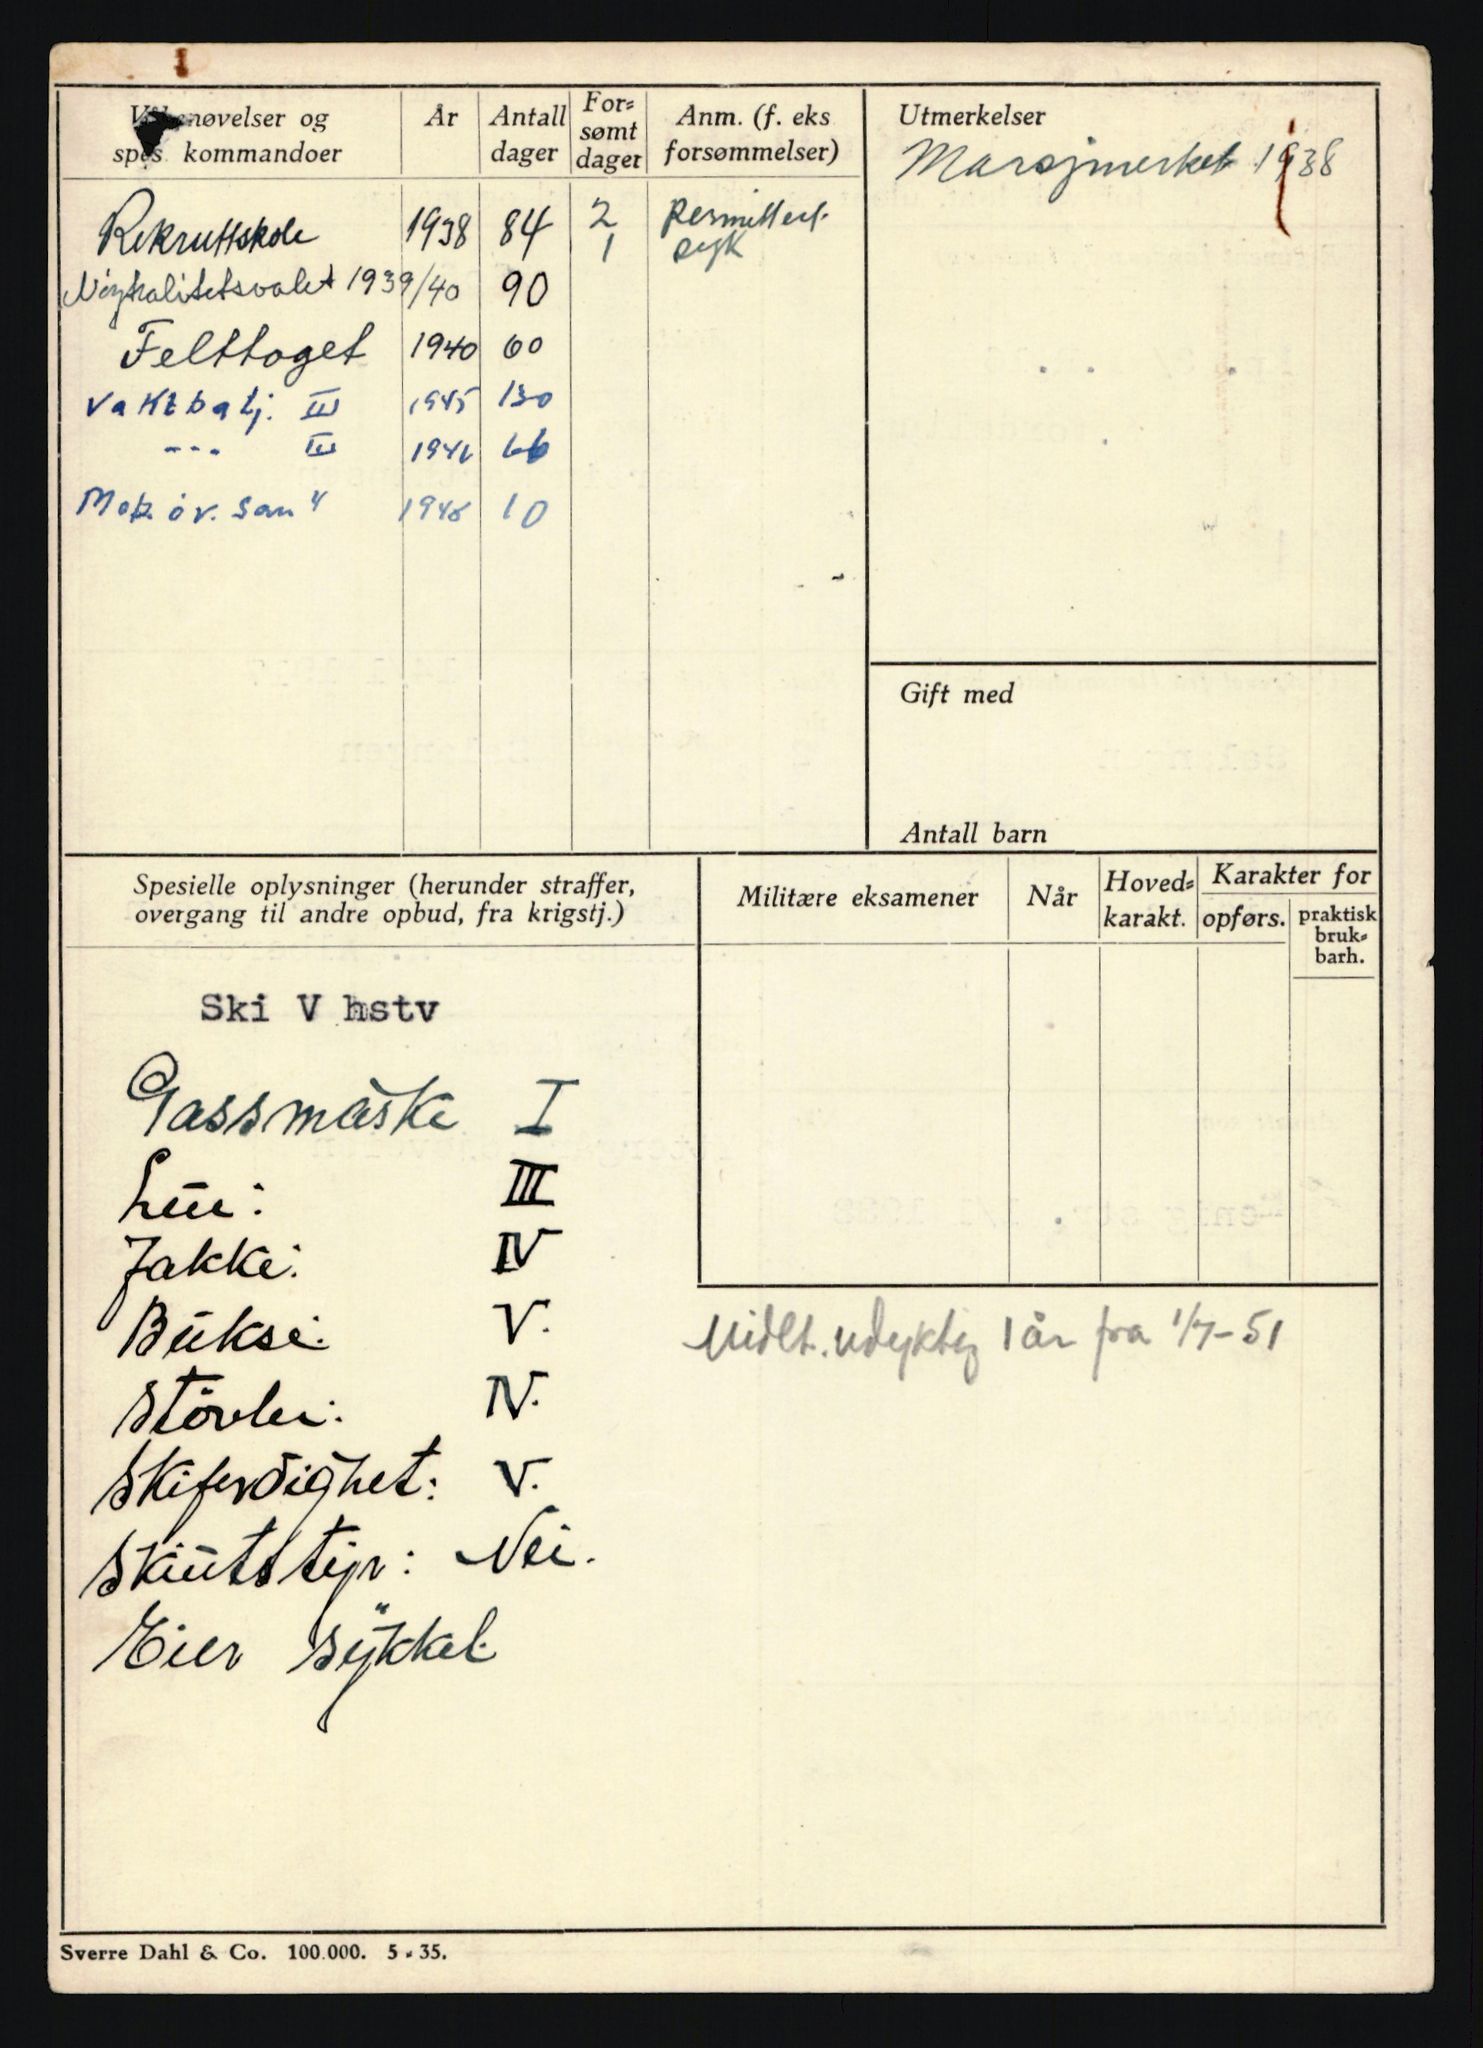 Våbenøvelser og
spes. kommandoer
År
Antall
dager
For-
sømt
dager
Anm. (f. eks
forsømmelser)
Rekruttskole 1938 84 2 Permittert.
1 syk
Nöytralitetsvakt 1939/40 90
Felttoget 1940 60
Vaktbatj. III 1945 130
--- III 1946 66
Mob. öv. San 10
Utmerkelser
Marsjmerket 1938
Gift med
Antall barn
Spesielle oplysninger (herunder straffer,
overgang til andre opbud, fra krigstj.)
Ski V hstv
Gassmaske I
Lue: III
Jakke: IV
Bukse: V.
Störler: IV.
Skiferdighet: V.
Skiutstyr: Nei.
Eier sykkel.
Militære eksamener
Når
Hoved-
karakt.
Karakter for
opførs.
praktisk
bruk-
barh.
Midlt. udyktig 1 år fra 1/7-51
Sverre Dahl & Co. 100.000. 5-35.